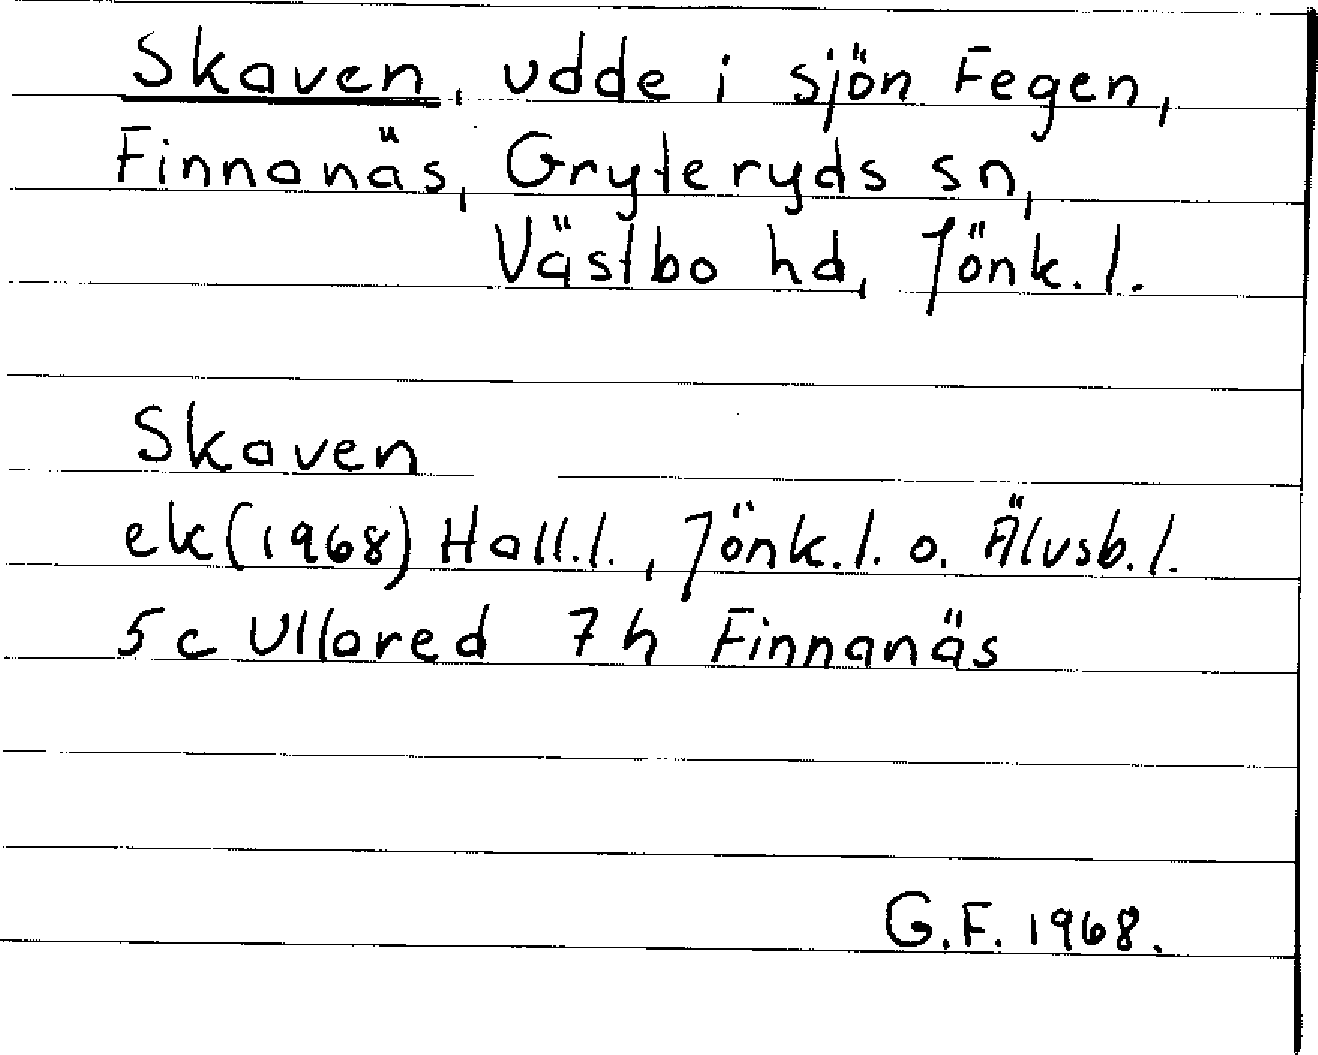 Skaven, udde i sjön Fegen,
Finnanäs, Gryteryds sn,
Västbo hd, Jönk. l.
Skaven
ek (1968) Hall.l., Jönk.l. o. Älvsb.l.
5c Ullared 7h Finnanäs
G.F. 1968.